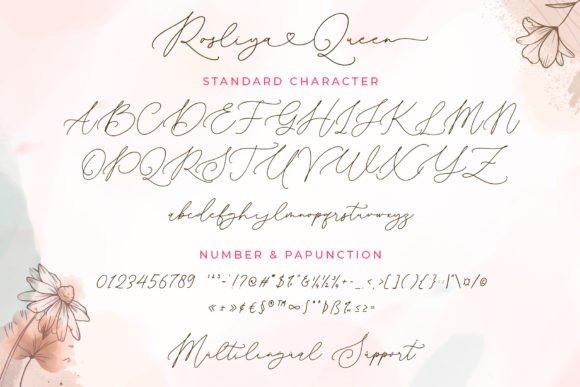 Rosliya Queen
STANDARD CHARACTER
ABCDEFGHIJKLMN
OPQRSTUVWXYZ
abcdefghijklmnopqrstuvwxyz
NUMBER & PAPUNCTION
0123456789
Multilingual Support